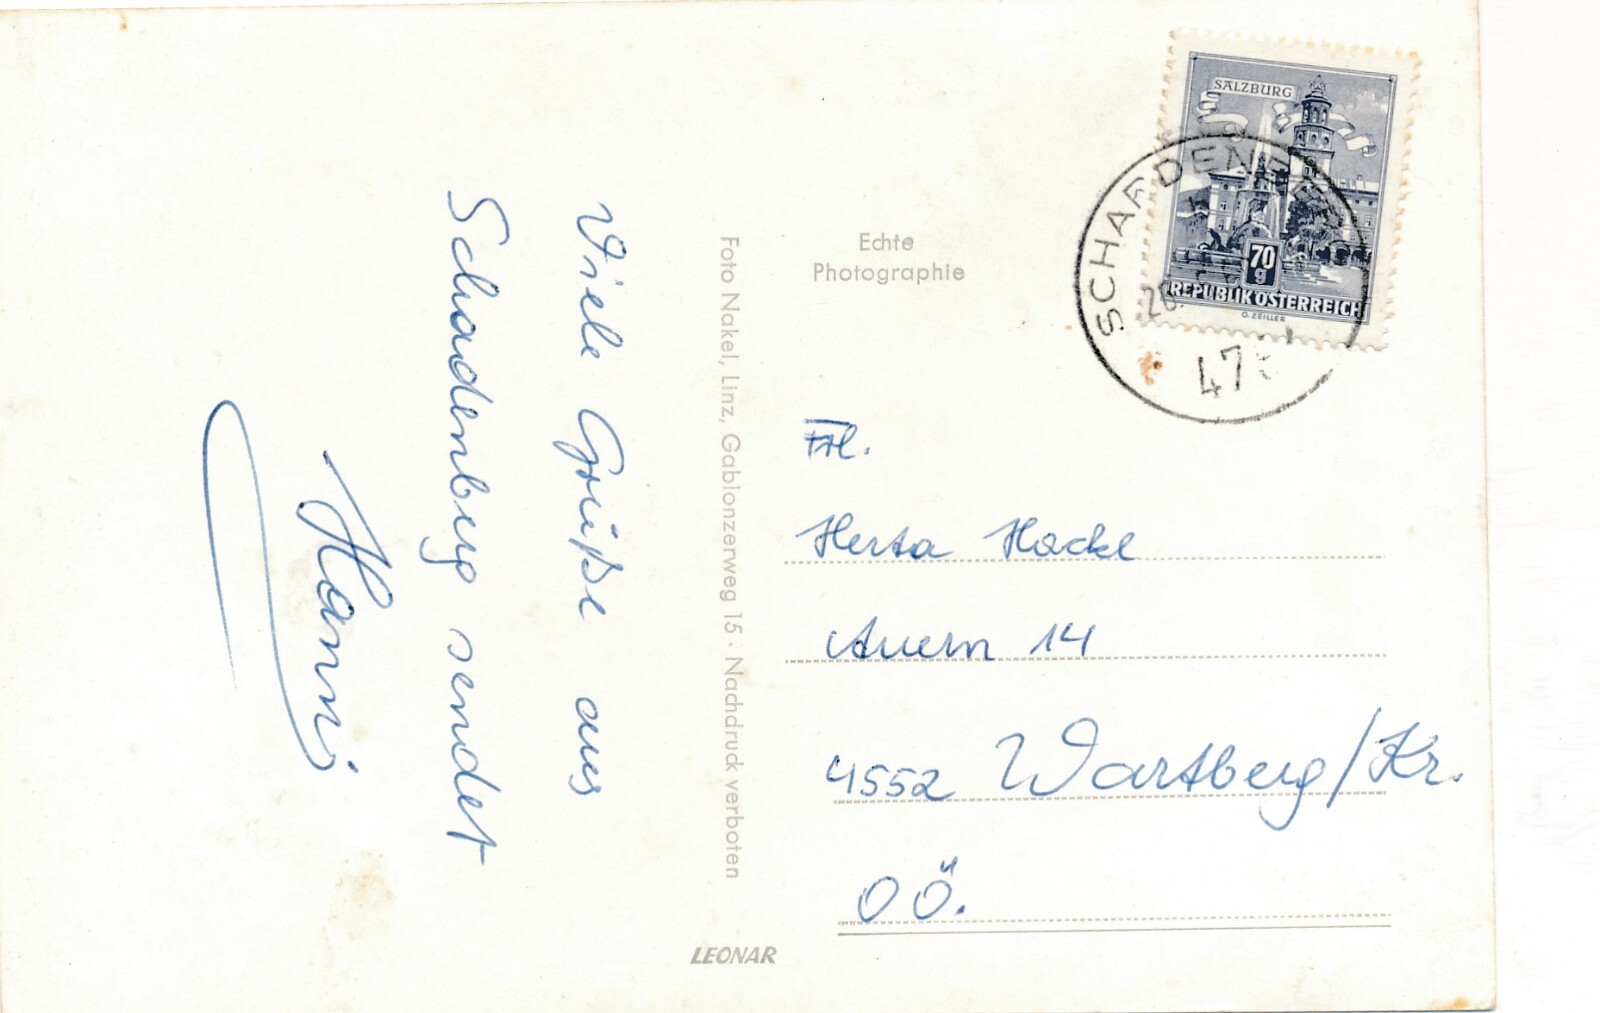 Viele Grüße aus
Schardenberg sendet
Hanni
Foto Nakel, Linz, Gablonzerweg 15 · Nachdruck verboten
LEONAR
Echte
Photographie
SALZBURG
70
g
REPUBLIK ÖSTERREICH
O. ZEILLER
SCHARDENBERG
20.
Frl.
Herta Hackl
Auern 14
4552 Wartberg/Kr.
OÖ.